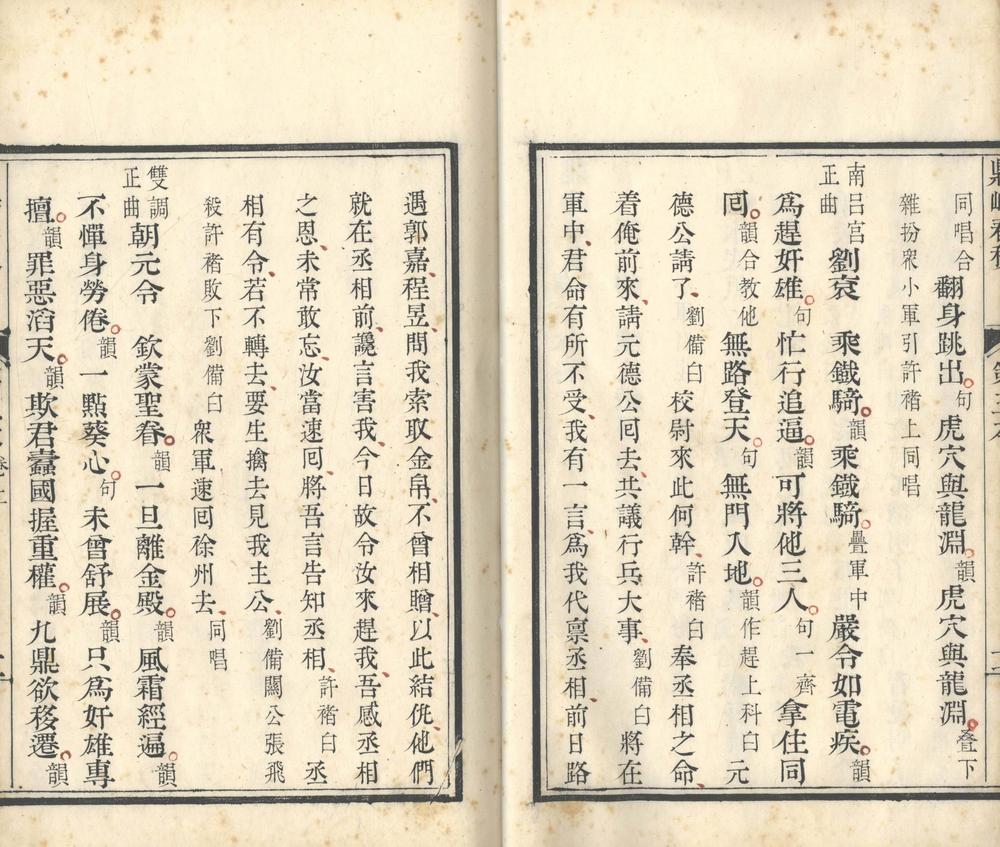 鼎峙春秋
同唱合 翻身跳出句 虎穴與龍淵韻 虎穴與龍淵疊下
雜扮衆小軍引許褚上同唱
南吕宮正曲 劉衮 乘鐵騎韻 乘鐵騎疊軍中 嚴令如電疾韻
爲趕奸雄句 忙行追逼韻 可將他三人句一齊 拿住同
囘韻合教他 無路登天句 無門入地韻作趕上科白 元
德公請了 劉備白 校尉來此何幹 許褚白 奉丞相之命
着俺前來請元德公囘去共議行兵大事 劉備白 將在
軍中君命有所不受我有一言爲我代禀丞相前日路
遇郭嘉程昱問我索取金帛不曾相贈以此結仇他們
就在丞相前讒言害我今日故令汝來趕我吾感丞相
之恩未常敢忘汝當速囘將吾言告知丞相 許褚白 丞
相有令若不轉去要生擒去見我主公 劉備關公張飛
殺許褚敗下劉備白 衆軍速囘徐州去 同唱
雙調正曲 朝元令 欽蒙聖眷韻 一旦離金殿韻 風霜經遍韻
不憚身勞倦韻 一點葵心句 未曾舒展韻 只爲奸雄專
擅韻 罪惡滔天韻 欺君蠹國握重權韻 九鼎欲移遷韻